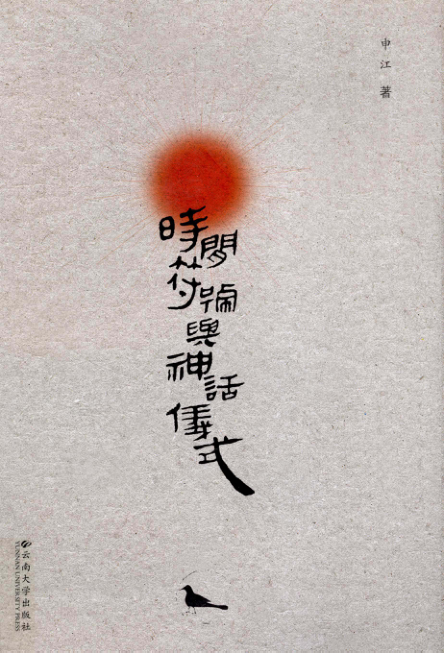 申江 著
時間符號與神話儀式
云南大学出版社
YUNNAN UNIVERSITY PRESS